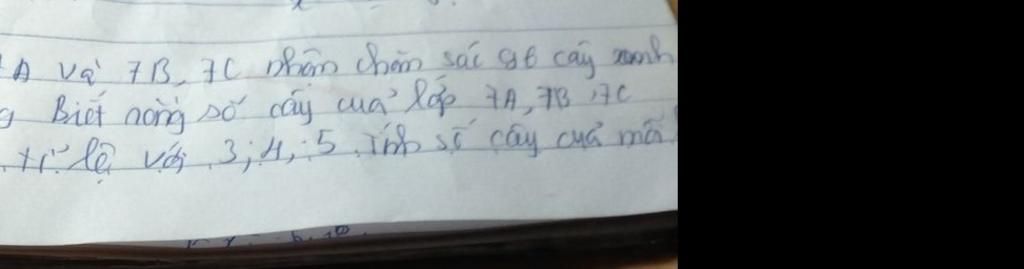 A và 7B, 7C nhận chăm sóc 96 cây xanh
g Biết rằng số cây của lớp 7A, 7B, 7C
tỉ lệ với 3; 4; 5 Tính số cây của mỗi